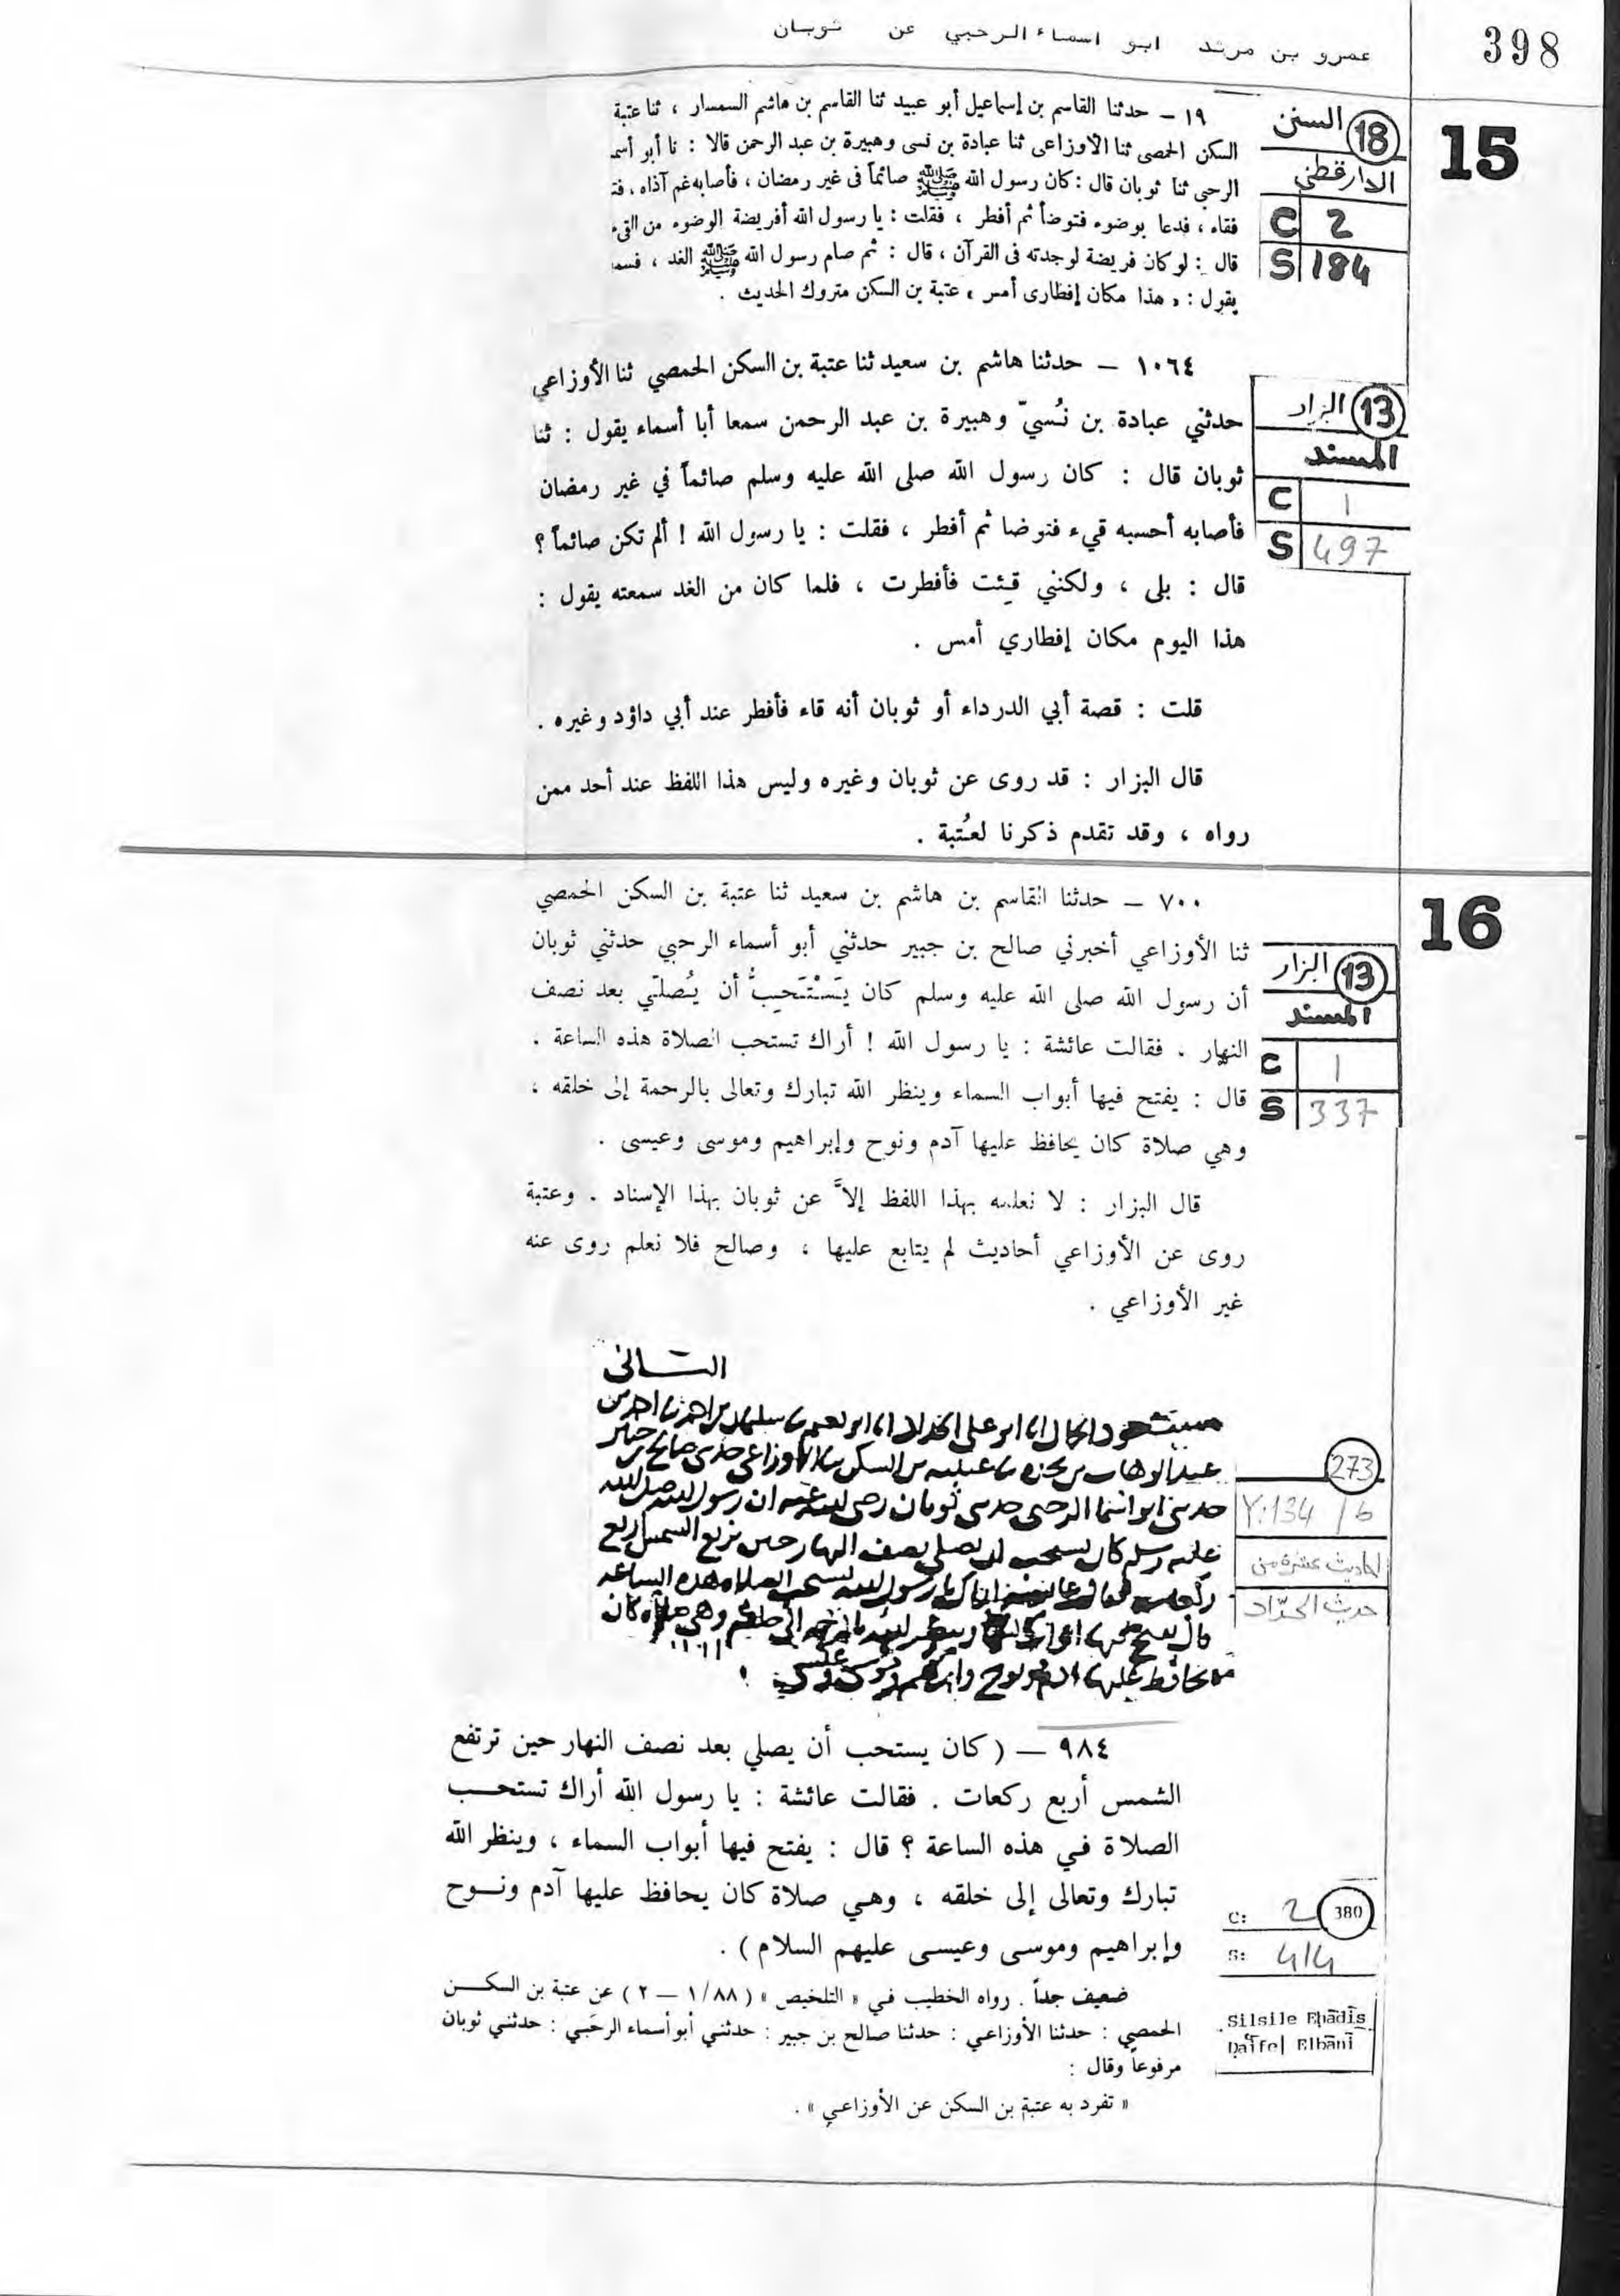 398
عمرو بن مرثد ابو اسماء الرحبي عن ثوبان
15
السنن 18
الدارقطني
C 2
S 184
١٩ – حدثنا القاسم بن إسماعيل أبو عبيد ثنا القاسم بن هاشم السمسار ، ثنا عتبة
السكن الحمصى ثنا الأوزاعى ثنا عبادة بن نسى وهبيرة بن عبد الرحمن قالا : نا أبو أسم
الرحبى ثنا ثوبان قال : كان رسول الله ﷺ صائماً فى غير رمضان ، فأصابه غم آذاه ، فت
فقاء ، فدعا بوضوء فتوضأ ثم أفطر ، فقلت : يا رسول الله أفريضة الوضوء من القىء
قال : لو كان فريضة لوجدته فى القرآن ، قال : ثم صام رسول الله ﷺ الغد ، فسم
يقول : « هذا مكان إفطارى أمس » عتبة بن السكن متروك الحديث .
13 البزار
المسند
C 1
S 497
١٠٦٤ – حدثنا هاشم بن سعيد ثنا عتبة بن السكن الحمصي ثنا الأوزاعي
حدثني عبادة بن نُسيّ وهبيرة بن عبد الرحمن سمعا أبا أسماء يقول : ثنا
ثوبان قال : كان رسول الله صلى الله عليه وسلم صائماً في غير رمضان
فأصابه أحسبه قيء فتوضا ثم أفطر ، فقلت : يا رسول الله ! ألم تكن صائماً ؟
قال : بلى ، ولكنني قئت فأفطرت ، فلما كان من الغد سمعته يقول :
هذا اليوم مكان إفطاري أمس .
قلت : قصة أبي الدرداء أو ثوبان أنه قاء فأفطر عند أبي داؤد وغيره .
قال البزار : قد روى عن ثوبان وغيره وليس هذا اللفظ عند أحد ممن
رواه ، وقد تقدم ذكرنا لعُتبة .
16
13 البزار
المسند
C 1
S 337
٧٠٠ – حدثنا القاسم بن هاشم بن سعيد ثنا عتبة بن السكن الحمصي
ثنا الأوزاعي أخبرني صالح بن جبير حدثني أبو أسماء الرحبي حدثني ثوبان
أن رسول الله صلى الله عليه وسلم كان يَسْتَحِبُّ أن يُصلّي بعد نصف
النهار . فقالت عائشة : يا رسول الله ! أراك تستحب الصلاة هذه الساعة .
قال : يفتح فيها أبواب السماء وينظر الله تبارك وتعالى بالرحمة إلى خلقه ،
وهي صلاة كان يحافظ عليها آدم ونوح وإبراهيم وموسى وعيسى .
قال البزار : لا نعلمه بهذا اللفظ إلاَّ عن ثوبان بهذا الإسناد . وعتبة
روى عن الأوزاعي أحاديث لم يتابع عليها ، وصالح فلا نعلم روى عنه
غير الأوزاعي .
273
Y:134/b
احاديث عشرة من
حديث الحدّاد
حدثني ابو اسما الرحبي حدثني ثوبان رضي الله عنه ان رسول الله صلى الله
عليه وسلم كان يستحب ان يصلي نصف النهار حين تزيغ الشمس اربع
٩٨٤ – ( كان يستحب أن يصلي بعد نصف النهار حين ترتفع
الشمس أربع ركعات . فقالت عائشة : يا رسول الله أراك تستحب
الصلاة في هذه الساعة ؟ قال : يفتح فيها أبواب السماء ، وينظر الله
تبارك وتعالى إلى خلقه ، وهي صلاة كان يحافظ عليها آدم ونوح
وإبراهيم وموسى وعيسى عليهم السلام ) .
380
C: 2
S: 414
Silsile Ehādîs
Daîfel Elbānî
ضعيف جداً . رواه الخطيب في « التلخيص » ( ٨٨/ ١ – ٢ ) عن عتبة بن السكن
الحمصي : حدثنا الأوزاعي : حدثنا صالح بن جبير : حدثني أبو أسماء الرحَبي : حدثني ثوبان
مرفوعاً وقال :
« تفرد به عتبة بن السكن عن الأوزاعي » .